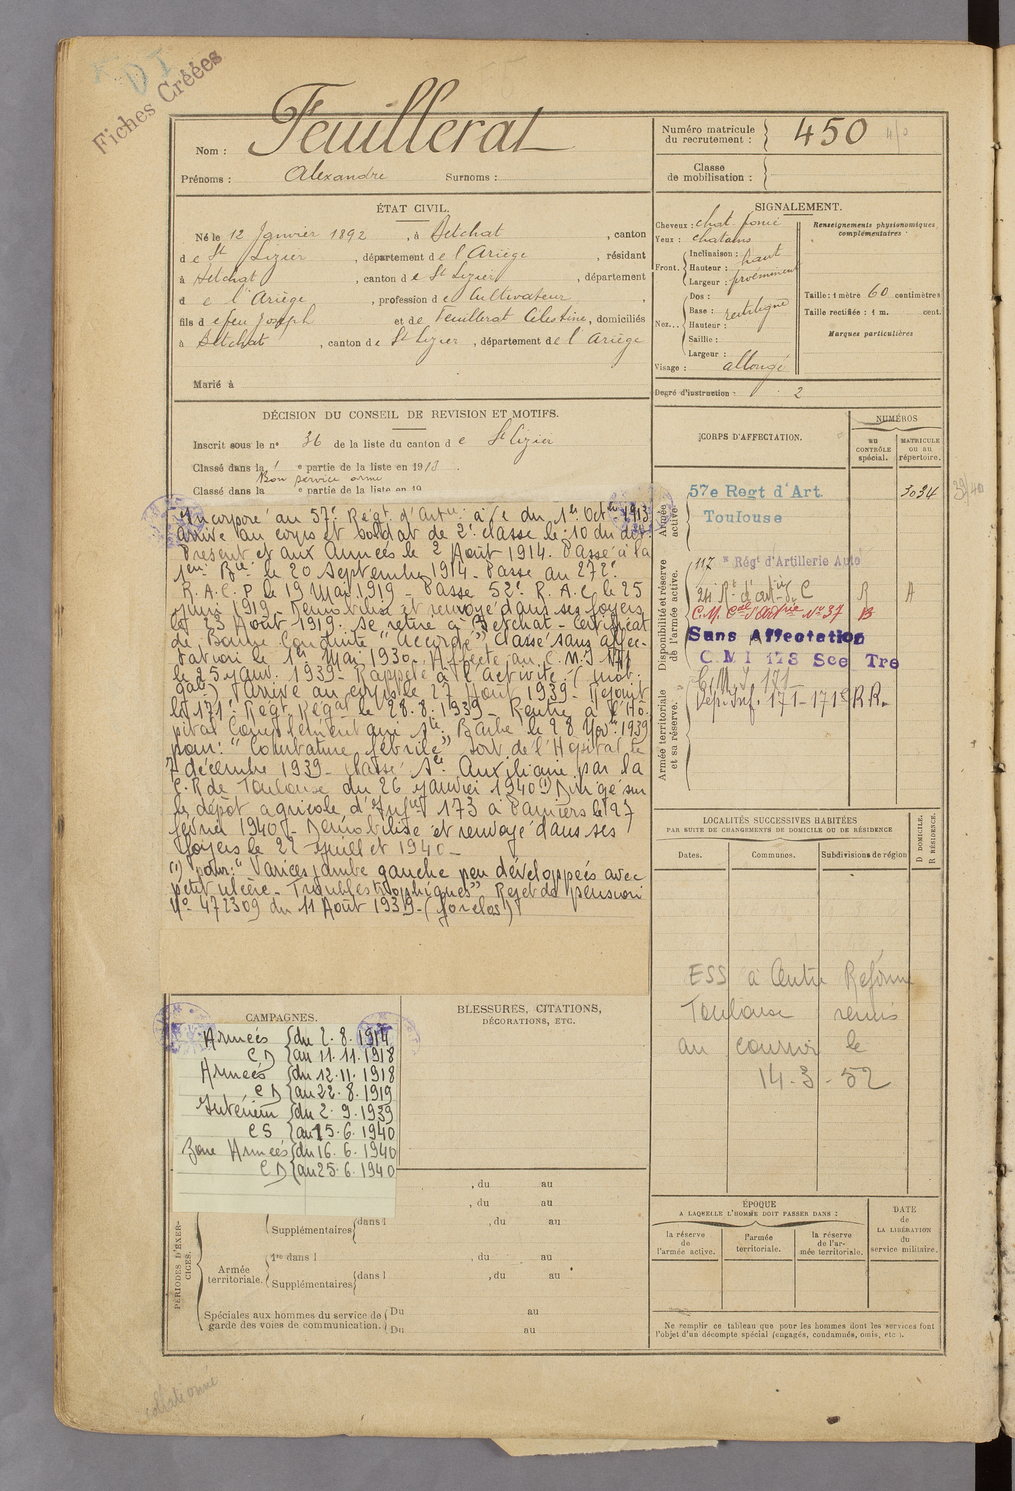 Fiches Créées
DI
Nom : Feuillerat
Prénoms : Alexandre Surnoms :
Numéro matricule du recrutement : 450
Classe de mobilisation :
ÉTAT CIVIL.
Né le 12 Janvier 1892, à Betchat, canton
de St Lizier, département de l'Ariège, résidant
à Betchat, canton de St Lizier, département
de l'Ariège, profession de Cultivateur,
fils de feu Joseph et de Feuillerat Célestine, domiciliés
à Betchat, canton de St Lizier, département de l'Ariège
Marié à
SIGNALEMENT.
Cheveux : chat. foncé
Yeux : chatains
Front. Inclinaison : haut
Hauteur :
Largeur : proéminent
Nez... Dos :
Base : rectiligne
Hauteur :
Saillie :
Largeur :
Visage : allongé
Renseignements physionomiques complémentaires
Taille : 1 mètre 60 centimètres
Taille rectifiée : 1 m. cent.
Marques particulières
Degré d'instruction : 2
DÉCISION DU CONSEIL DE REVISION ET MOTIFS.
Inscrit sous le n° 36 de la liste du canton de St Lizier
Classé dans la 1e partie de la liste en 1913.
Bon service armé
Classé dans la e partie de la liste en 19
Incorporé au 57e Régt d'Artie à/c du 1er Octbre 1913
arrivé au corps et soldat de 2e classe le 10 du dit
Présent et aux Armées le 2 Août 1914. Passé à la
1ère Bie le 20 Septembre 1914. Passé au 272e
R.A.C.P le 19 Mai 1919 - Passé 52e R.A.C le 25
juin 1919 - Démobilisé et renvoyé dans ses foyers
le 23 Août 1919. Se retire à Betchat - Certificat
de Bonne Conduite "Accordé" Classé sans affec-
tation le 1er Mai 1930. Affecté au C.M.I 171
le 25 janv. 1939 - Rappelé à l'activité (mob.
gale) Arrivé au corps le 27 Août 1939 - Rejoint
le 171e Régt Régal le 28.8.1939 - Rentre à l'Hô-
pital Complémentaire Ste Barbe le 28 Nov. 1939
pour : "Courbature fébrile" Sort de l'Hôpital le
7 décembre 1939 - Classé Sce Auxiliaire par la
C.R de Toulouse du 26 janvier 1940 (1) Dirigé sur
le dépôt agricole d'Infrie 173 à Pamiers le 27
février 1940 - Démobilisé et renvoyé dans ses
foyers le 22 Juillet 1940 -
(1) pour : "Varices jambe gauche peu développées avec
petit ulcère - Troubles trophiques" Rejet de pension
N° 472309 du 11 Août 1939 - (forclos)
CORPS D'AFFECTATION.
NUMÉROS
au contrôle spécial.
MATRICULE ou au répertoire.
Armée active.
57e Regt d'Art.
Toulouse
3034
Disponibilité et réserve de l'armée active.
117e Régt d'Artillerie Auto
24 Rt d'artie de C R A
C.M. Cal d'Artie N° 37 B
Sans Affectation
C M I 173 Sce Tre
Armée territoriale et sa réserve.
C. M. I 171
Dép. Inf. 171 - 171e RR.
LOCALITÉS SUCCESSIVES HABITÉES
PAR SUITE DE CHANGEMENTS DE DOMICILE OU DE RÉSIDENCE
Dates. Communes. Subdivisions de région
D DOMICILE. R RÉSIDENCE.
ESS à Centre Réforme
Toulouse remis
au courrier le
14-3-52
CAMPAGNES.
Armées du 2.8.1914
CD au 11.11.1918
Armées du 12.11.1918
CD au 22.8.1919
Intérieur du 2.9.1939
CS au 15.6.1940
Zone Armées du 16.6.1940
CD au 25.6.1940
BLESSURES, CITATIONS,
DÉCORATIONS, ETC.
PÉRIODES D'EXERCICES.
, du au
, du au
Supplémentaires dans l , du au
Armée territoriale. 1re dans l , du au
Supplémentaires dans l , du au
Spéciales aux hommes du service de garde des voies de communication. Du au
Du au
ÉPOQUE
A LAQUELLE L'HOMME DOIT PASSER DANS :
la réserve de l'armée active.
l'armée territoriale.
la réserve de l'armée territoriale.
DATE de LA LIBÉRATION du service militaire.
Ne remplir ce tableau que pour les hommes dont les services font
l'objet d'un décompte spécial (engagés, condamnés, omis, etc.).
collationné